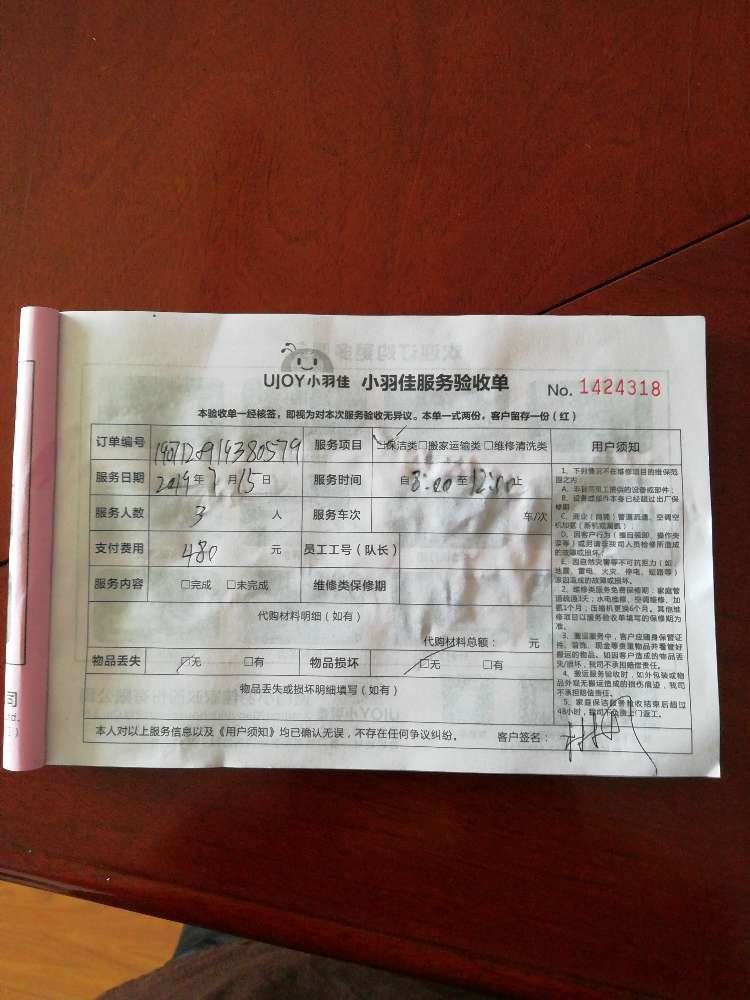 UJOY小羽佳 小羽佳服务验收单 No. 1424318
本验收单一经核签，即视为对本次服务验收无异议。本单一式两份，客户留存一份（红）
订单编号 服务项目 □保洁类□搬家运输类□维修清洗类 用户须知
服务日期 2019年7月15日 服务时间 自8:00至12:00止
服务人数 3 人 服务车次 车/次
支付费用 480 元 员工工号（队长）
服务内容 □完成 □未完成 维修类保修期
代购材料明细（如有）
代购材料总额： 元
物品丢失 □无 □有 物品损坏 □无 □有
物品丢失或损坏明细填写（如有）
本人对以上服务信息以及《用户须知》均已确认无误，不存在任何争议纠纷。 客户签名：
1、下列情况不在维修项目的维保范
围之内：
A、非我司员工提供的设备或部件；
B、设备或部件本身已经超过出厂保
修期；
C、商业（商铺）管道疏通、空调空
机加氨（新机或漏氨）
D、因客户行为（擅自装卸、操作失
误等）或另请非我司人员检修所造成
的故障或损坏；
E、因自然灾害等不可抗拒力（如
地震、雷电、火灾、停电、短路等）
原因造成的故障或损坏。
2、维修类服务免费保修期：家庭管
道疏通3天；水电维修、空调维修、加
氨1个月；压缩机更换6个月。其他维
修项目以服务验收单填写的保修期为
准。
3、搬运服务中，客户应随身保管证
件、首饰、现金等贵重物品并看管好
搬运的物品。如因客户造成的物品丢
失/损坏，我司不承担赔偿责任。
4、搬运服务验收时，如外包装或物
品外观无搬运造成的损伤痕迹，我司
不承担赔偿责任。
5、家庭保洁服务验收结束后超过
48小时，我司不负责上门返工。
司
td.